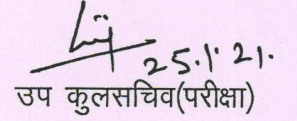 25.1.21.
उप कुलसचिव(परीक्षा)